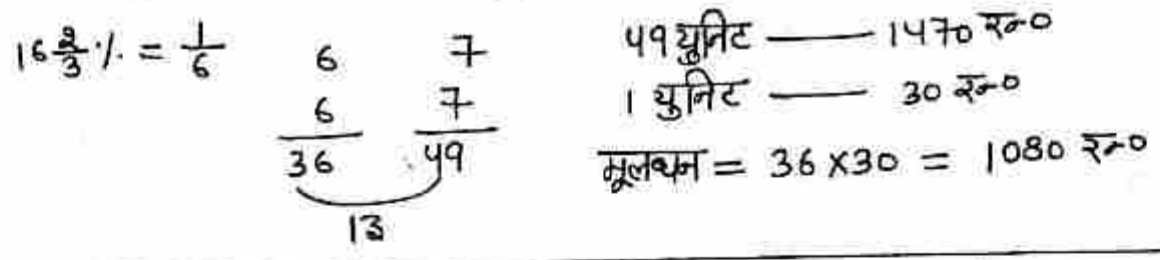 16 2/3 % = 1/6
6 7
6 7
36 49
13
49 युनिट —— 1470 रु०
1 युनिट —— 30 रु०
मूलधन = 36 × 30 = 1080 रु०